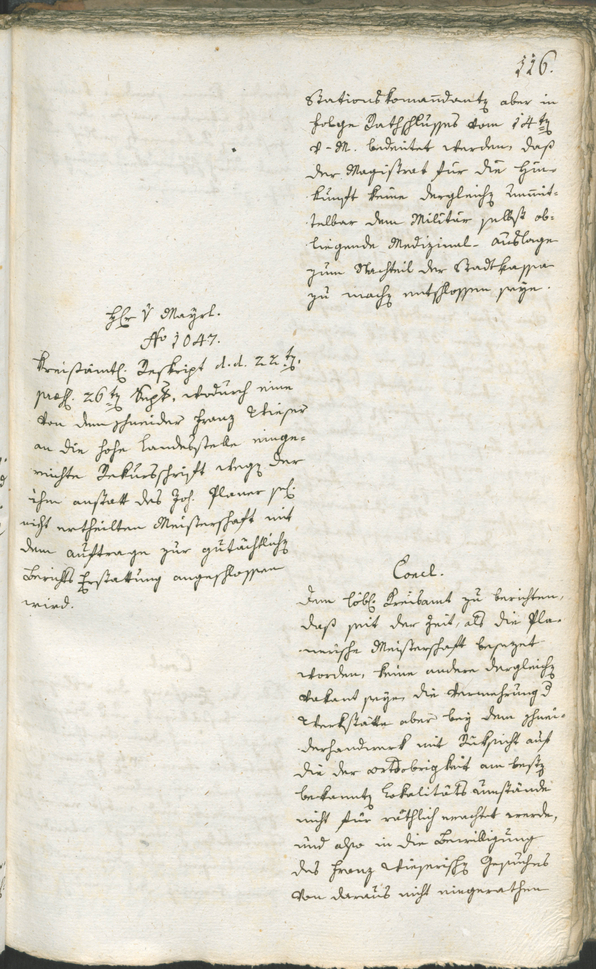 116.
Stationskomandantz aber in
Folge Rathschlusses vom 14tz
v-M. bedeutet werden, daß
der Magistrat für die Hin-
kunft keine dergleichz unmit-
telbar dem Militär selbst ob-
liegende Medizinal-Auslage
zum Nachteil der Stadtkassa
zu machz entschlossen seye.
Hr v Mayrl.
No 1047.
Kreisämtl. Reskript d.d. 22tz.
präs. 26tz Septb. wodurch eine
von dem Schneider Franz Wieser
an die hohe Landesstelle einge-
reichte Rekursschrift wegz der
ihm anstatt des Joh. Planer sel.
nicht ertheilten Meisterschaft mit
dem Auftrage zur gutächtlichz
Berichts Erstattung angeschlossen
wird.
Concl.
Dem löbl. Kreisamt zu berichten,
daß seit der Zeit, als die Pla-
nerische Meisterschaft besezet
worden, keine andere dergleichz
vakant seye, die Vermehrung d
Werkstätte aber bey dem Schnei-
derhandwerk mit Rüksicht auf
die der Ortsobrigkeit am bestz
bekantz Lokalitäts Umstände
nicht für räthlich erachtet werde,
und also in die Bewilligung
des Franz Wieserischz Gesuches
von daraus nicht eingerathen